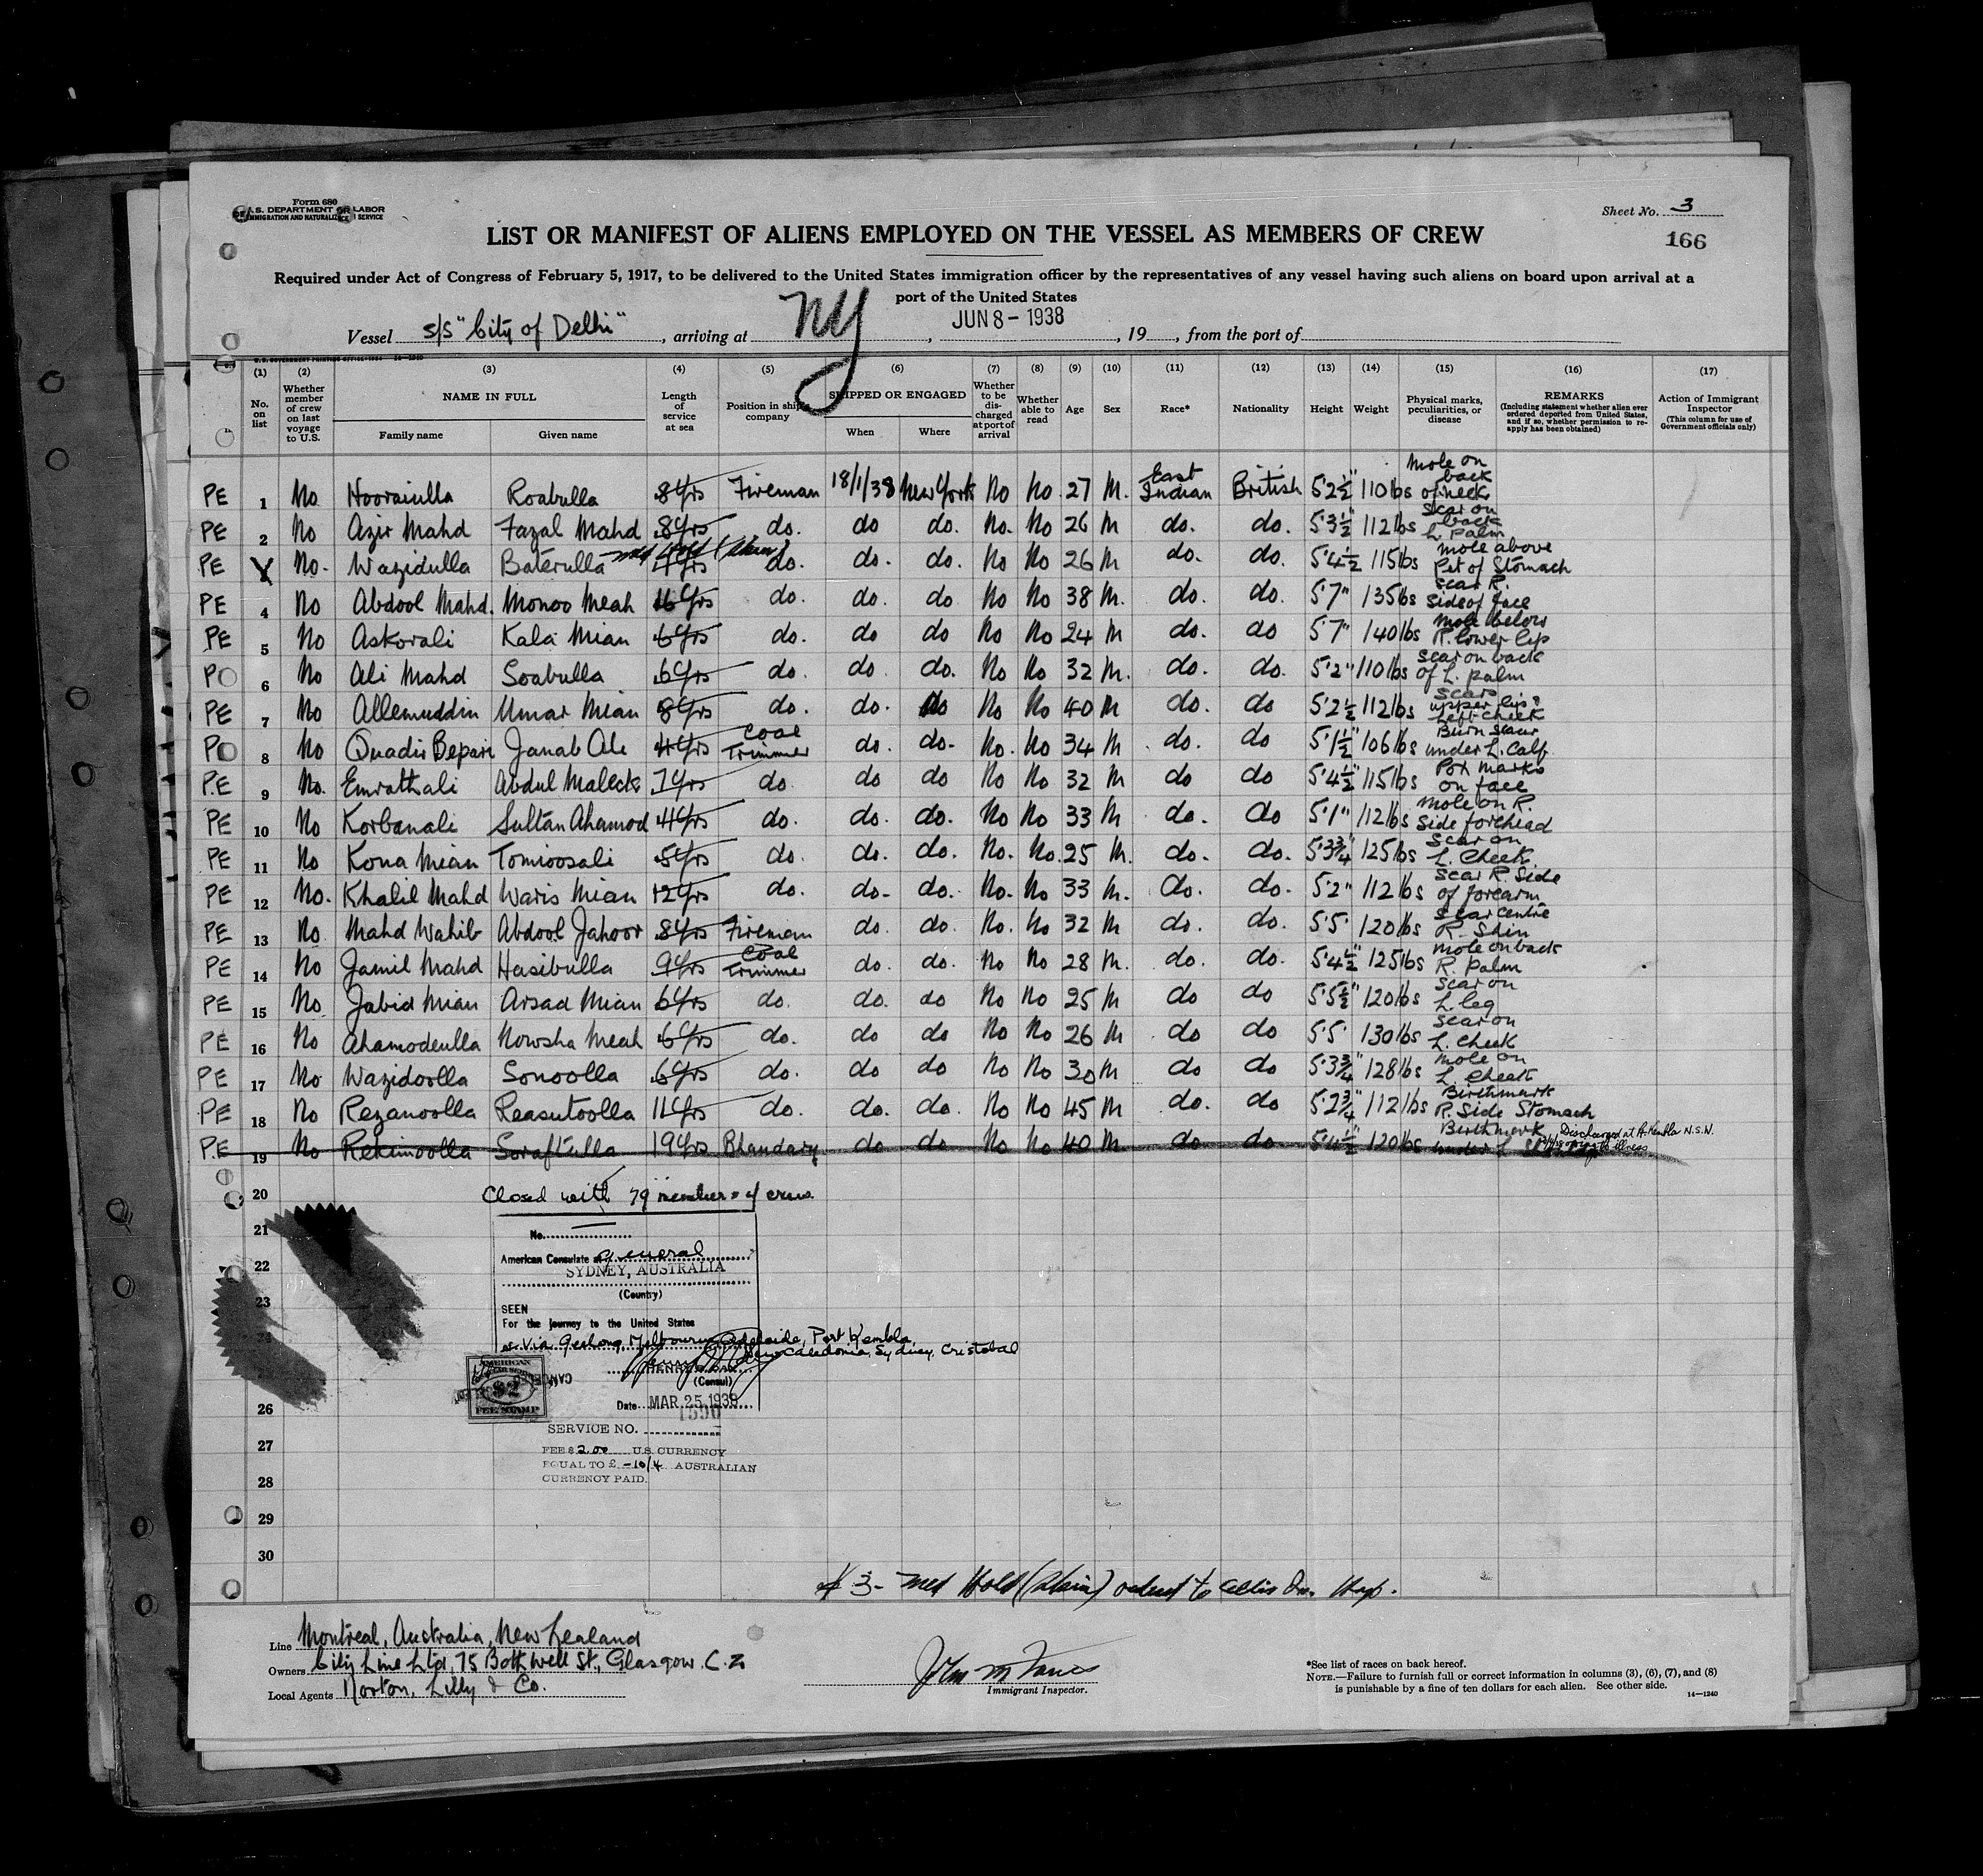 Form 680
U.S. DEPARTMENT OF LABOR
IMMIGRATION AND NATURALIZATION SERVICE
Sheet No. 3
166
LIST OR MANIFEST OF ALIENS EMPLOYED ON THE VESSEL AS MEMBERS OF CREW
Required under Act of Congress of February 5, 1917, to be delivered to the United States immigration officer by the representatives of any vessel having such aliens on board upon arrival at a
port of the United States
Vessel S/S "City of Delhi", arriving at NY, JUN 8 - 1938, 19, from the port of
(1) (2) (3) (4) (5) (6) (7) (8) (9) (10) (11) (12) (13) (14) (15) (16) (17)
No. on list
Whether member of crew on last voyage to U.S.
NAME IN FULL
Family name Given name
Length of service at sea
Position in ship's company
SHIPPED OR ENGAGED
When Where
Whether to be discharged at port of arrival
Whether able to read
Age Sex Race* Nationality Height Weight
Physical marks, peculiarities, or disease
REMARKS
(Including statement whether alien ever ordered deported from United States, and if so, whether permission to reapply has been obtained)
Action of Immigrant Inspector
(This column for use of Government officials only)
PE 1 No Hoorainlla Roabulla 8 Yrs Fireman 18/1/38 New York No No 27 M. East Indian British 5'2½" 110 lbs Mole on back of neck
PE 2 No Azir Mahd Fazal Mahd 8 Yrs do. do do. No. No 26 M do. do. 5'3½" 112 lbs Scar on back L. Palm
PE No. Wazidulla Baterulla Med Hold 4 Yrs do. do. do. No No 26 M do. do. 5'4½ 115 lbs Mole above Pit of Stomach
PE 4 No Abdool Mahd. Monoo Meah 16 Yrs do. do. do No No 38 M. do. do. 5'7" 135 lbs Scar R. Side of face
PE 5 No Askorali Kala Mian 6 Yrs do. do do No No 24 M do. do 5'7" 140 lbs Mole below R. lower lip
PO 6 No Ali Mahd Soabulla 6 Yrs do. do. do. No No 32 M. do. do. 5'2" 110 lbs Scar on back of L. palm
PE 7 No Allemuddin Umar Mian 8 Yrs do. do. do No No 40 M do. do. 5'2½ 112 lbs Scars upper lip & Left cheek
PO 8 No Quadir Bepari Janab Ali 4 Yrs Coal Trimmer do. do. No. No 34 M do. do 5'1½" 106 lbs Burn Scar under L. Calf
P.E 9 No. Emrathali Abdul Maleck 7 Yrs do do do No No 32 M do do 5'4½" 115 lbs Pox marks on face
PE 10 No Korbanali Sultan Ahamod 4 Yrs do. do. do. No No 33 M do. do 5'1" 112 lbs Mole on R. Side forehead
PE 11 No Kona Mian Tomioosali 5 Yrs do. do. do. No. No. 25 M. do. do. 5'3¾" 125 lbs Scar on L. Cheek
PE 12 No. Khalil Mahd Waris Mian 12 Yrs do. do. do. No. No 33 M. do. do. 5'2" 112 lbs Scar R. Side of forearm
PE 13 No Mahd Wahib Abdool Jahoor 8 Yrs Fireman do. do. No. No 32 M do. do. 5'5" 120 lbs Scar centre R. Shin
PE 14 No Jamil Mahd Hasibulla 9 Yrs Coal Trimmer do. do. No No 28 M. do. do. 5'4½" 125 lbs Mole on back R. palm
PE 15 No Jabid Mian Arsad Mian 6 Yrs do. do. do No No 25 M do do 5'5½" 120 lbs Scar on L. leg
PE 16 No Ahamodeulla Nowsha Meah 6 Yrs do. do do No No 26 M do do 5'5" 130 lbs Scar on L. Cheek
PE 17 No Wazidoolla Sonoolla 6 Yrs do. do do No No 30 M do do 5'3¾" 128 lbs Mole on L. Cheek
PE 18 No Rezanoolla Reasutoolla 11 Yrs do. do. do. No No 45 M do. do 5'2¾" 112 lbs Birthmark R. Side Stomach
P.E 19 No Rekimoolla Soraftulla 19 Yrs Bhandary do do No No 40 M do do 5'4½" 120 lbs Birthmark under L. Discharged at Pt. Kembla N.S.W. owing to illness
20 Closed with 79 members of crew
21
No.
American Consulate General
22
SYDNEY, AUSTRALIA
(Country)
23
SEEN
For the journey to the United States
via Geelong, Melbourne, Adelaide, Port Kembla,
New Caledonia, Sydney, Cristobal
(Consul)
AMERICAN
$2
FEE STAMP
Date MAR 25 1938
26
1590
SERVICE NO.
27
FEE $ 2.00 U.S. CURRENCY
EQUAL TO £ -10/4 AUSTRALIAN
28
CURRENCY PAID.
29
30
# 3 - Med Hold ordered to Ellis Isl. Hosp.
Line Montreal, Australia, New Zealand
Owners City Line Ltd, 75 Bothwell St., Glasgow. C.2
Local Agents Norton, Lilly & Co.
Immigrant Inspector.
*See list of races on back hereof.
NOTE.—Failure to furnish full or correct information in columns (3), (6), (7), and (8)
is punishable by a fine of ten dollars for each alien. See other side.
14—1240